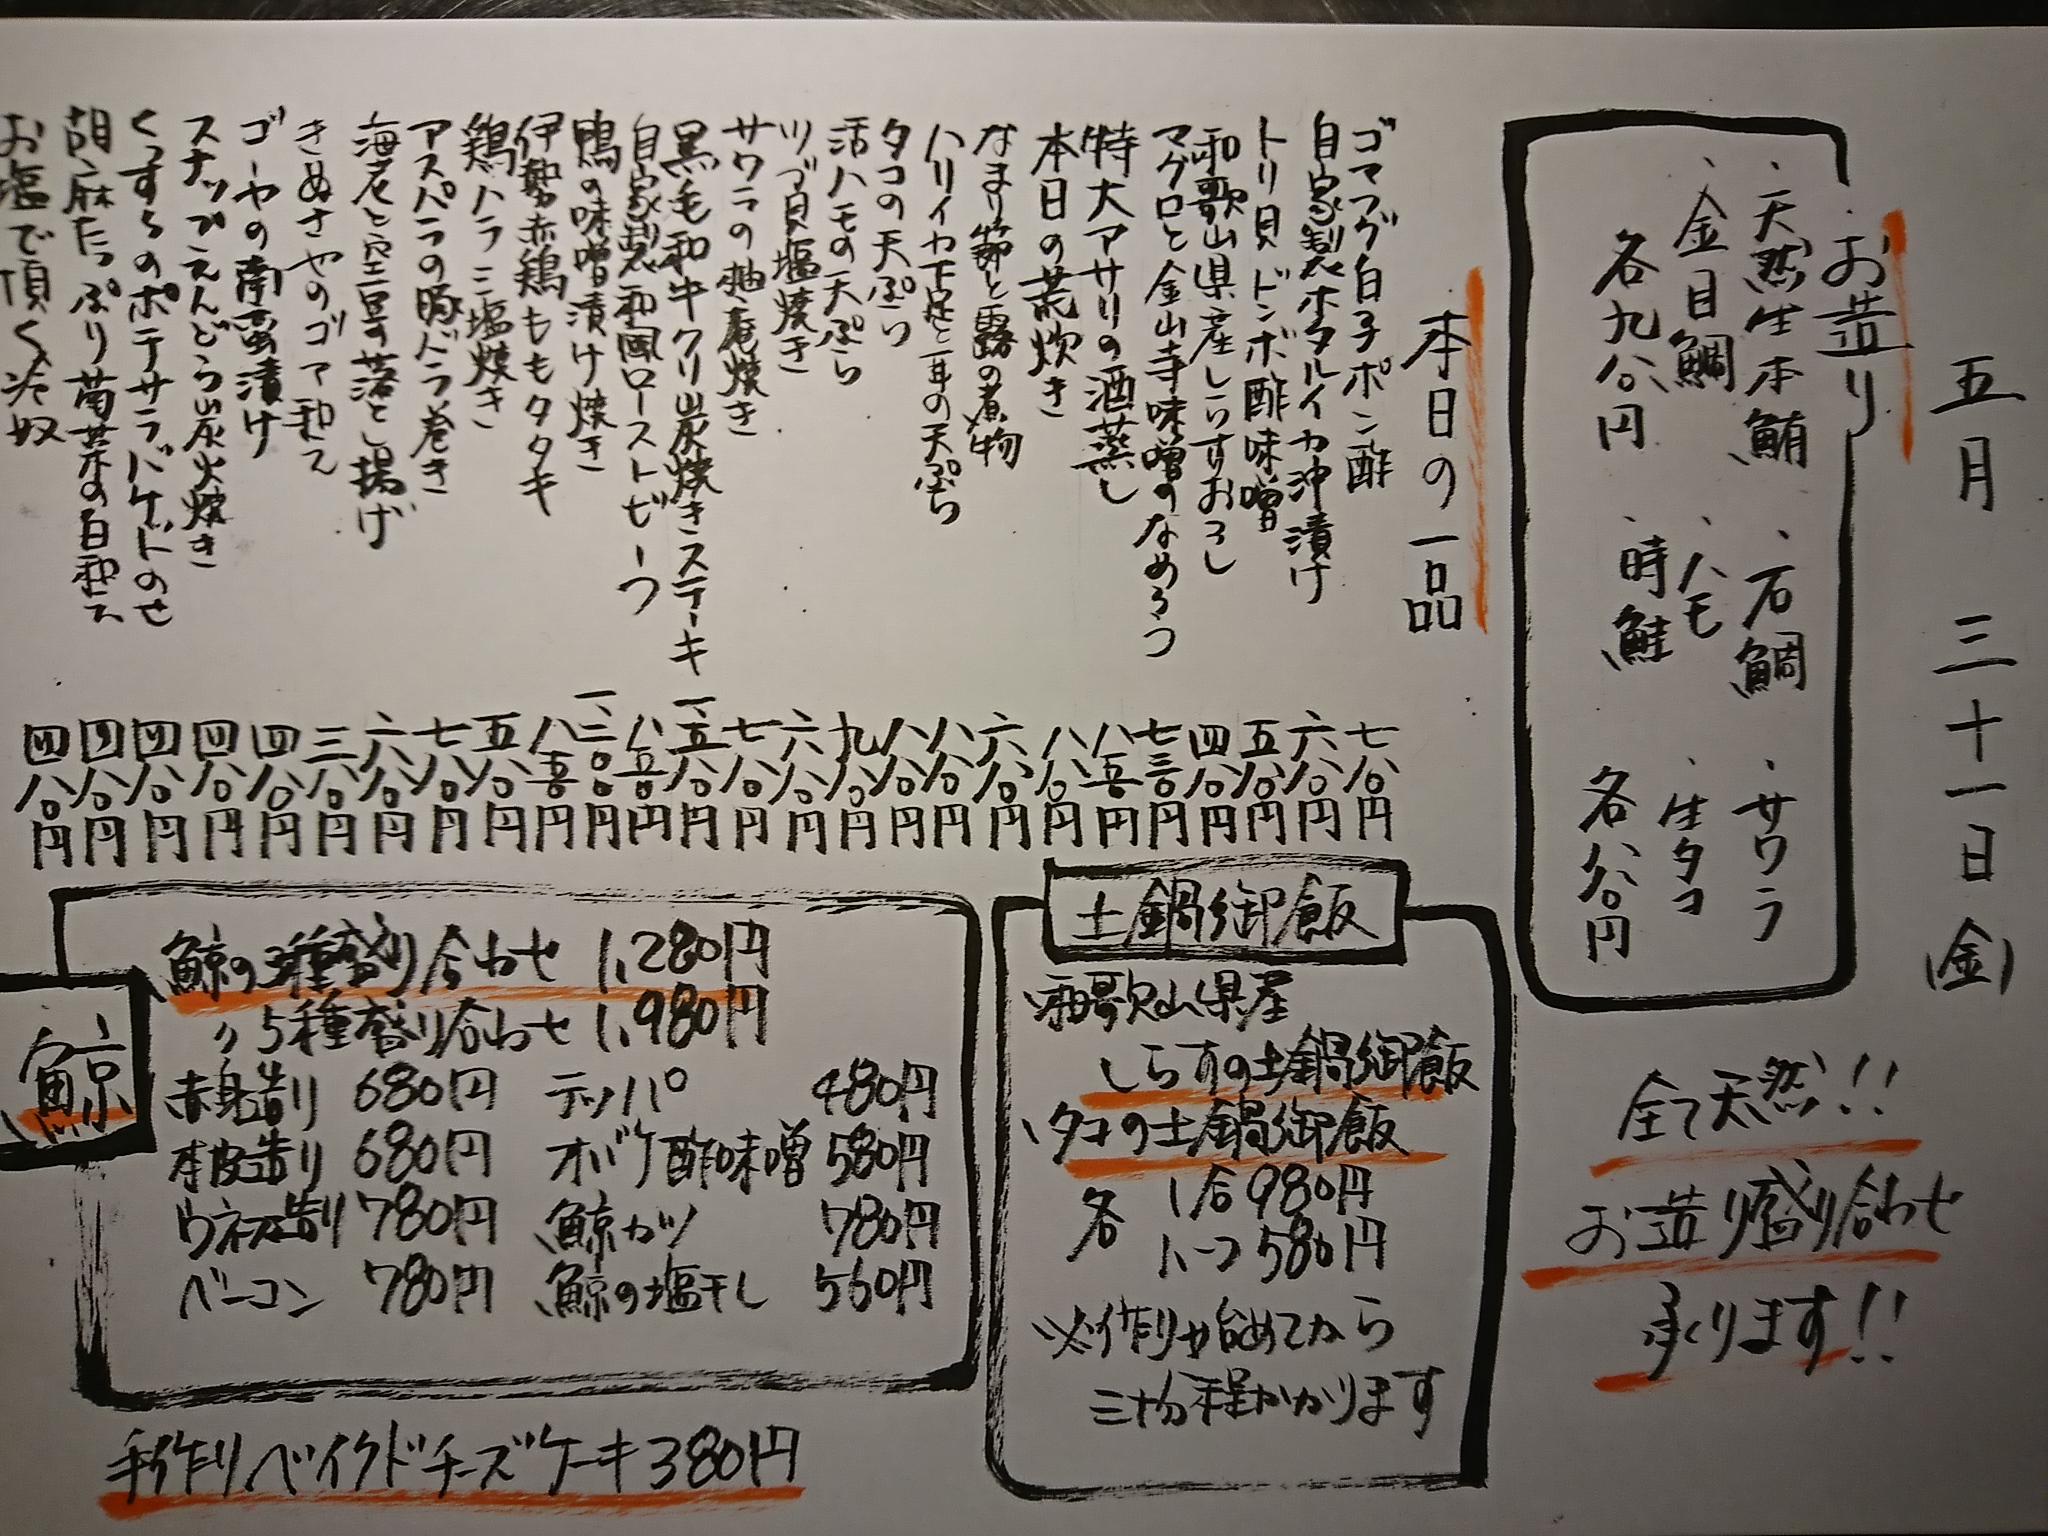 五月三十一日(金)
お造り
・天然生本鮪 ・石鯛 ・サワラ
・金目鯛 ・ハモ ・生タコ
各九八〇円 ・時鮭 各八八〇円
全て天然!!
お造り盛り合わせ
承ります!!
本日の一品
ゴマフグ白子ポン酢 七八〇円
自家製ホタルイカ沖漬け 六八〇円
トリ貝ドンボ酢味噌 五八〇円
和歌山県産しらすおろし 四八〇円
マグロと金山寺味噌のなめろう 七三〇円
特大アサリの酒蒸し 八五〇円
本日の荒炊き 八八〇円
なまり節と蕗の煮物 六八〇円
ハリイカ下足と耳の天ぷら 八八〇円
タコの天ぷら 八八〇円
活ハモの天ぷら 九八〇円
ツブ貝塩焼き 六八〇円
サワラの柚庵焼き 七八〇円
黒毛和牛クリ炭焼きステーキ 一、五八〇円
自家製和風ローストビーフ 八五〇円
鴨の味噌漬け焼き 一、三〇〇円
伊勢赤鶏ももタタキ 八五〇円
鶏ハラミ塩焼き 五八〇円
アスパラの豚バラ巻き 七八〇円
海老と空豆の落とし揚げ 六八〇円
きぬさやのゴマ和え 三八〇円
ゴーヤの南蛮漬け 四八〇円
スナップえんどう炭火焼き 四八〇円
ポテサラバケットのせ 四八〇円
胡麻たっぷり菊菜の白和え 四八〇円
お塩で頂く冷奴 四八〇円
土鍋御飯
・和歌山県産
しらすの土鍋御飯
・タコの土鍋御飯
各 1合980円
ハーフ580円
※作り始めてから
三十分程かかります
鯨
鯨の3種盛り合わせ 1,280円
〃5種盛り合わせ 1,980円
赤身造り 680円 テッパ 480円
本皮造り 680円 オバケ酢味噌 580円
ウネス造り 780円 鯨カツ 780円
ベーコン 780円 鯨の塩干し 560円
手作りベイクドチーズケーキ380円